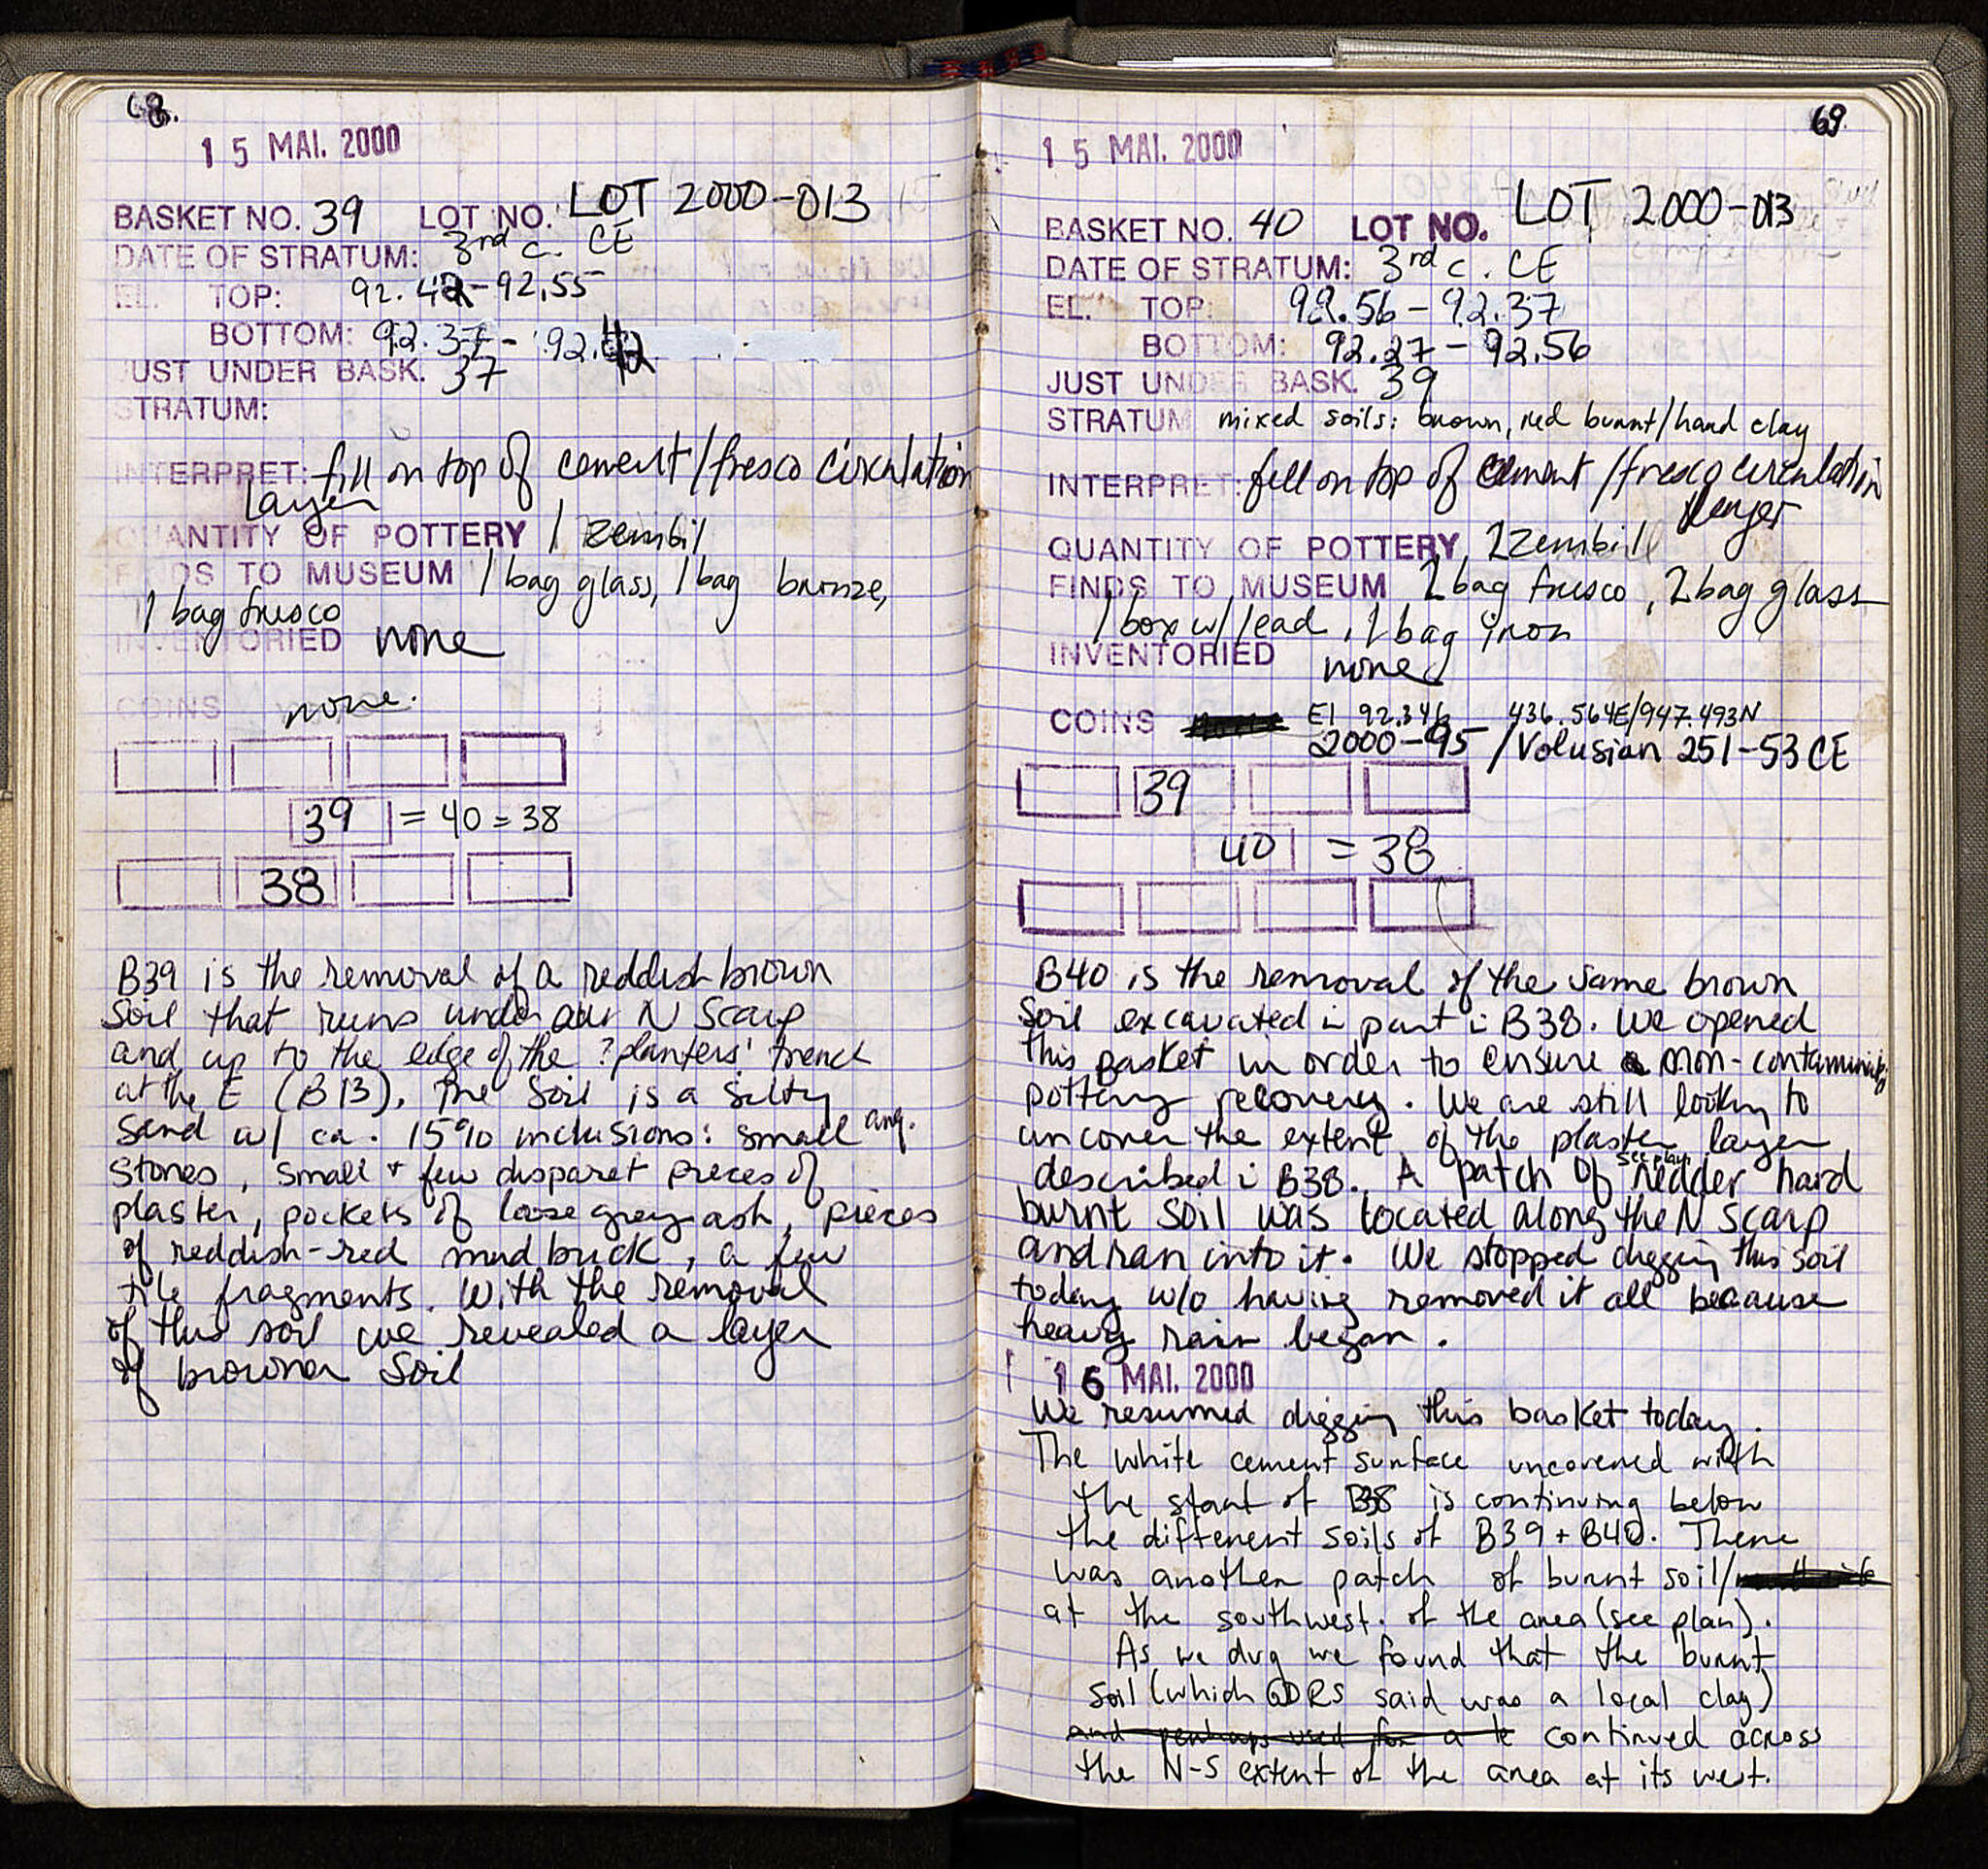 68.
15 MAI. 2000
BASKET NO. 39 LOT NO. LOT 2000-013
DATE OF STRATUM: 3rd c. CE
EL. TOP: 92.42-92.55
BOTTOM: 92.37-92.42
JUST UNDER BASK. 37
STRATUM:
INTERPRET: fill on top of cement/fresco circulation
layer
QUANTITY OF POTTERY 1 zembil
FINDS TO MUSEUM 1 bag glass, 1 bag bronze,
1 bag fresco
INVENTORIED none
COINS none.
39 = 40 = 38
38
B39 is the removal of a reddish brown
soil that runs under our N scarp
and up to the edge of the ?planters' trench
at the E (B13). The soil is a silty
sand w/ ca. 15% inclusions: small ang.
stones, small + few disparet pieces of
plaster, pockets of loose grey ash, pieces
of reddish-red mud brick, a few
tile fragments. With the removal
of this soil we revealed a layer
of browner soil
69.
15 MAI. 2000
BASKET NO. 40 LOT NO. LOT 2000-013
DATE OF STRATUM: 3rd c. CE
EL. TOP: 92.56-92.37
BOTTOM: 92.27-92.56
JUST UNDER BASK. 39
STRATUM mixed soils: brown, red burnt/hard clay
INTERPRET: fill on top of cement/fresco circulation
layer
QUANTITY OF POTTERY 2 zembil
FINDS TO MUSEUM 2 bag fresco, 2 bag glass
1 box w/ lead, 1 bag iron
INVENTORIED none
COINS El 92.346 436.564E/947.493N
2000-95 / Volusian 251-53 CE
39
40 = 38
B40 is the removal of the same brown
soil excavated in part in B38. We opened
this basket in order to ensure non-contaminated
pottery recovery. We are still looking to
uncover the extent of the plaster layer
described in B38. A patch of see plan redder hard
burnt soil was located along the N scarp
and ran into it. We stopped digging this soil
today w/o having removed it all because
heavy rain began.
16 MAI. 2000
We resumed digging this basket today.
The white cement surface uncovered with
the start of B38 is continuing below
the different soils of B39 + B40. There
was another patch of burnt soil/
at the southwest. of the area (see plan).
As we dug we found that the burnt
soil (which GDRS said was a local clay)
and perhaps used for a continued across
the N-S extent of the area at its west.